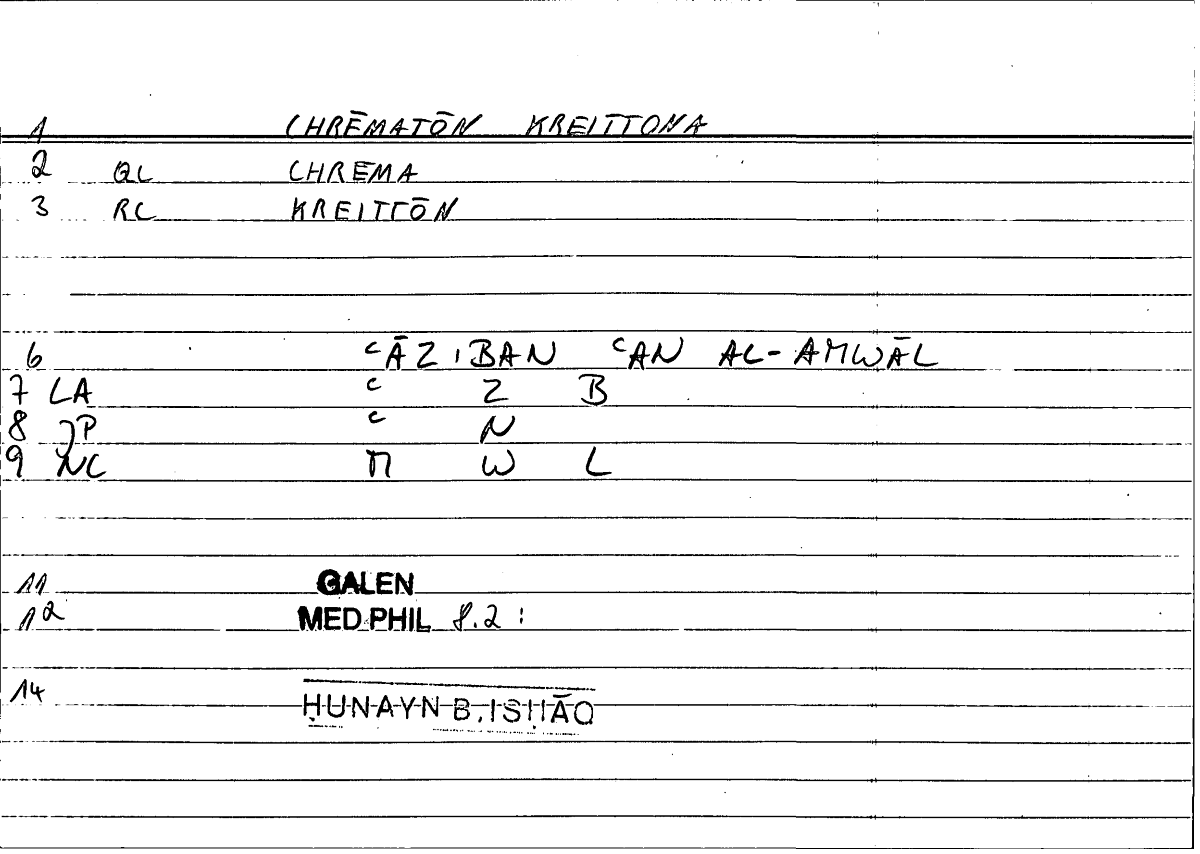 1 CHRĒMATŌN KREITTONA
2 QL CHREMA
3 RC KREITTŌN
6 ʿĀZIBAN ʿAN AL-AMWĀL
7 LA ʿ Z B
8 JP ʿ N
9 NC M W L
11 GALEN
12 MED.PHIL 8.2:
14 ḤUNAYN B.ISḤĀQ